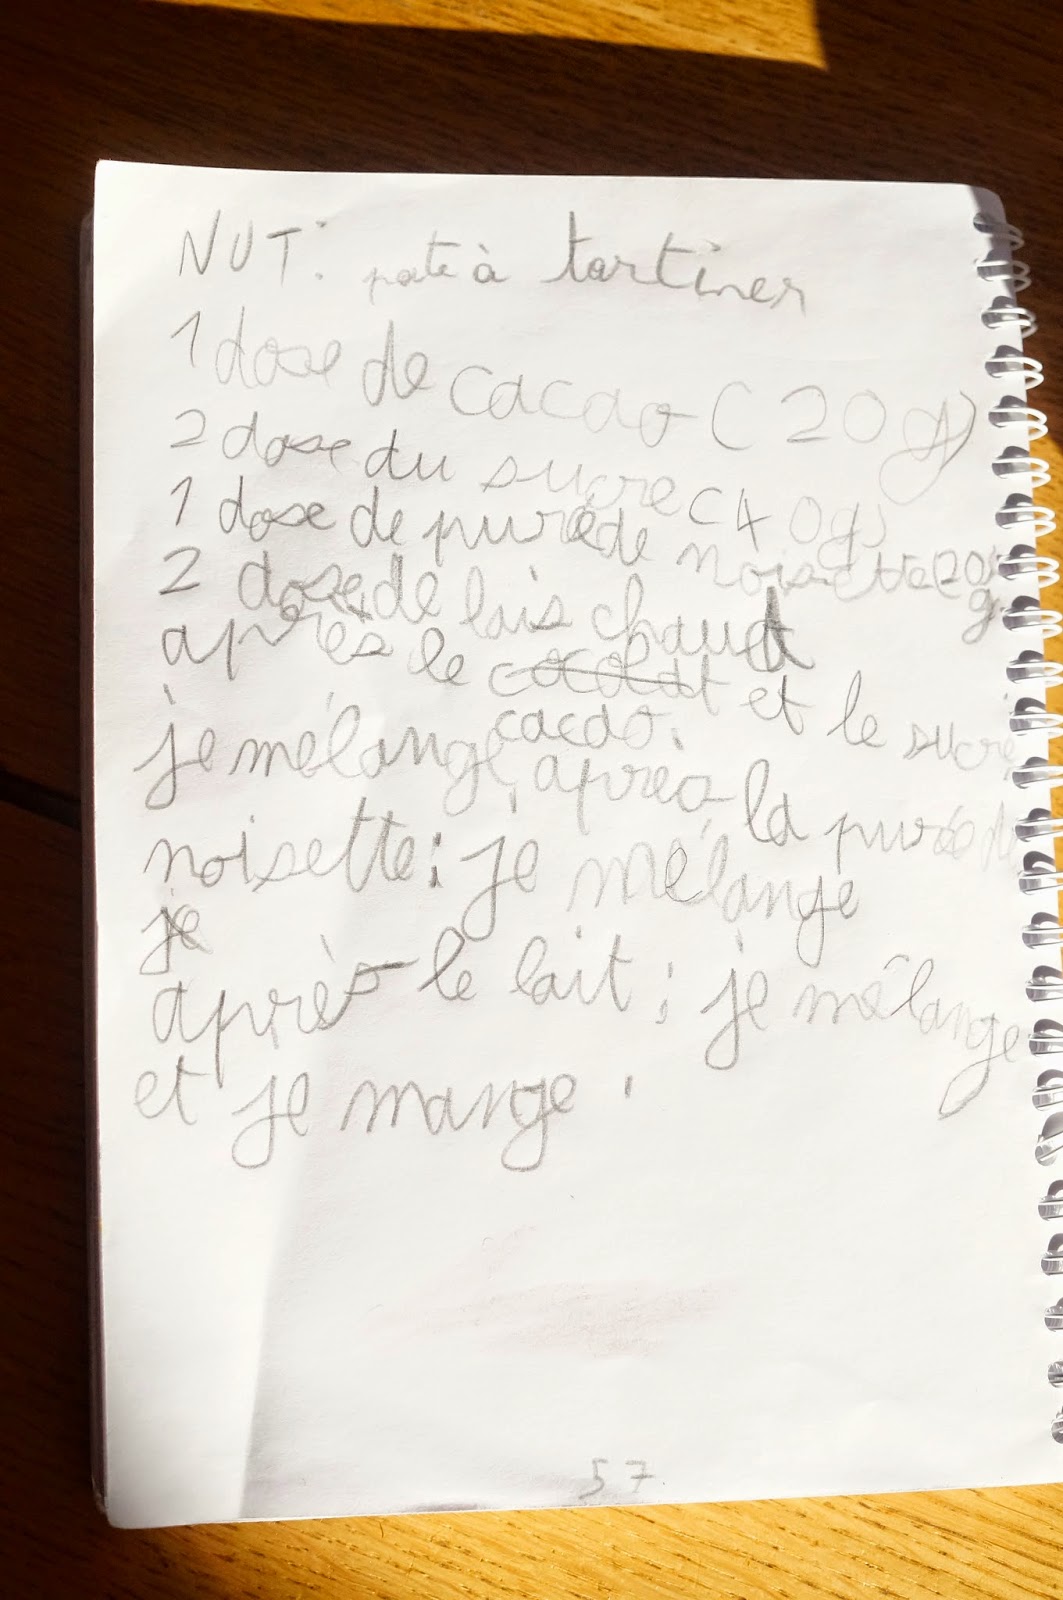 NUT: pate à tartiner
1 dose de cacao (20g)
2 dose du sucre (40g)
1 dose de purée de noisette (20g)
2 dose de lais chaud
après le cocolat et le sucre
cacao.
je mélange, après la purée de
noisette: je mélange
je
après le lait; je mélange
et je mange.
57